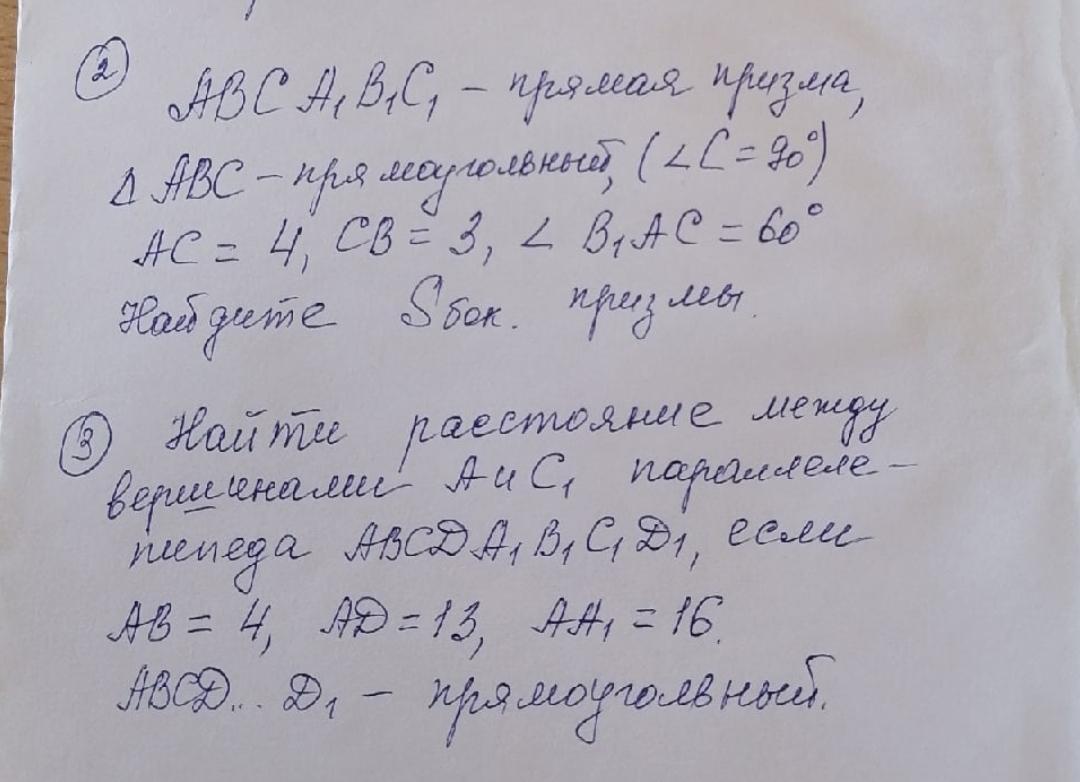 ②
ABCA₁B₁C₁ – прямая призма,
Δ ABC – прямоугольный, (∠C = 90°)
AC = 4, CB = 3, ∠ B₁AC = 60°
Найдите Sбок. призмы.
③ Найти расстояние между
вершинами A и C₁ параллеле-
пипеда ABCDA₁B₁C₁D₁, если
AB = 4, AD = 13, AA₁ = 16.
ABCD...D₁ – прямоугольный.